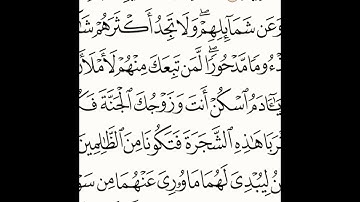 وَعَن شَمَآئِلِهِمْ ۖ وَلَا تَجِدُ أَكْثَرَهُمْ
مَذْءُومًا مَّدْحُورًا ۖ لَّمَن تَبِعَكَ مِنْهُمْ لَأَمْلَأَنَّ
يَٰٓـَٔادَمُ ٱسْكُنْ أَنتَ وَزَوْجُكَ ٱلْجَنَّةَ
هَٰذِهِ ٱلشَّجَرَةَ فَتَكُونَا مِنَ ٱلظَّٰلِمِينَ
لِيُبْدِىَ لَهُمَا مَا وُۥرِىَ عَنْهُمَا مِن